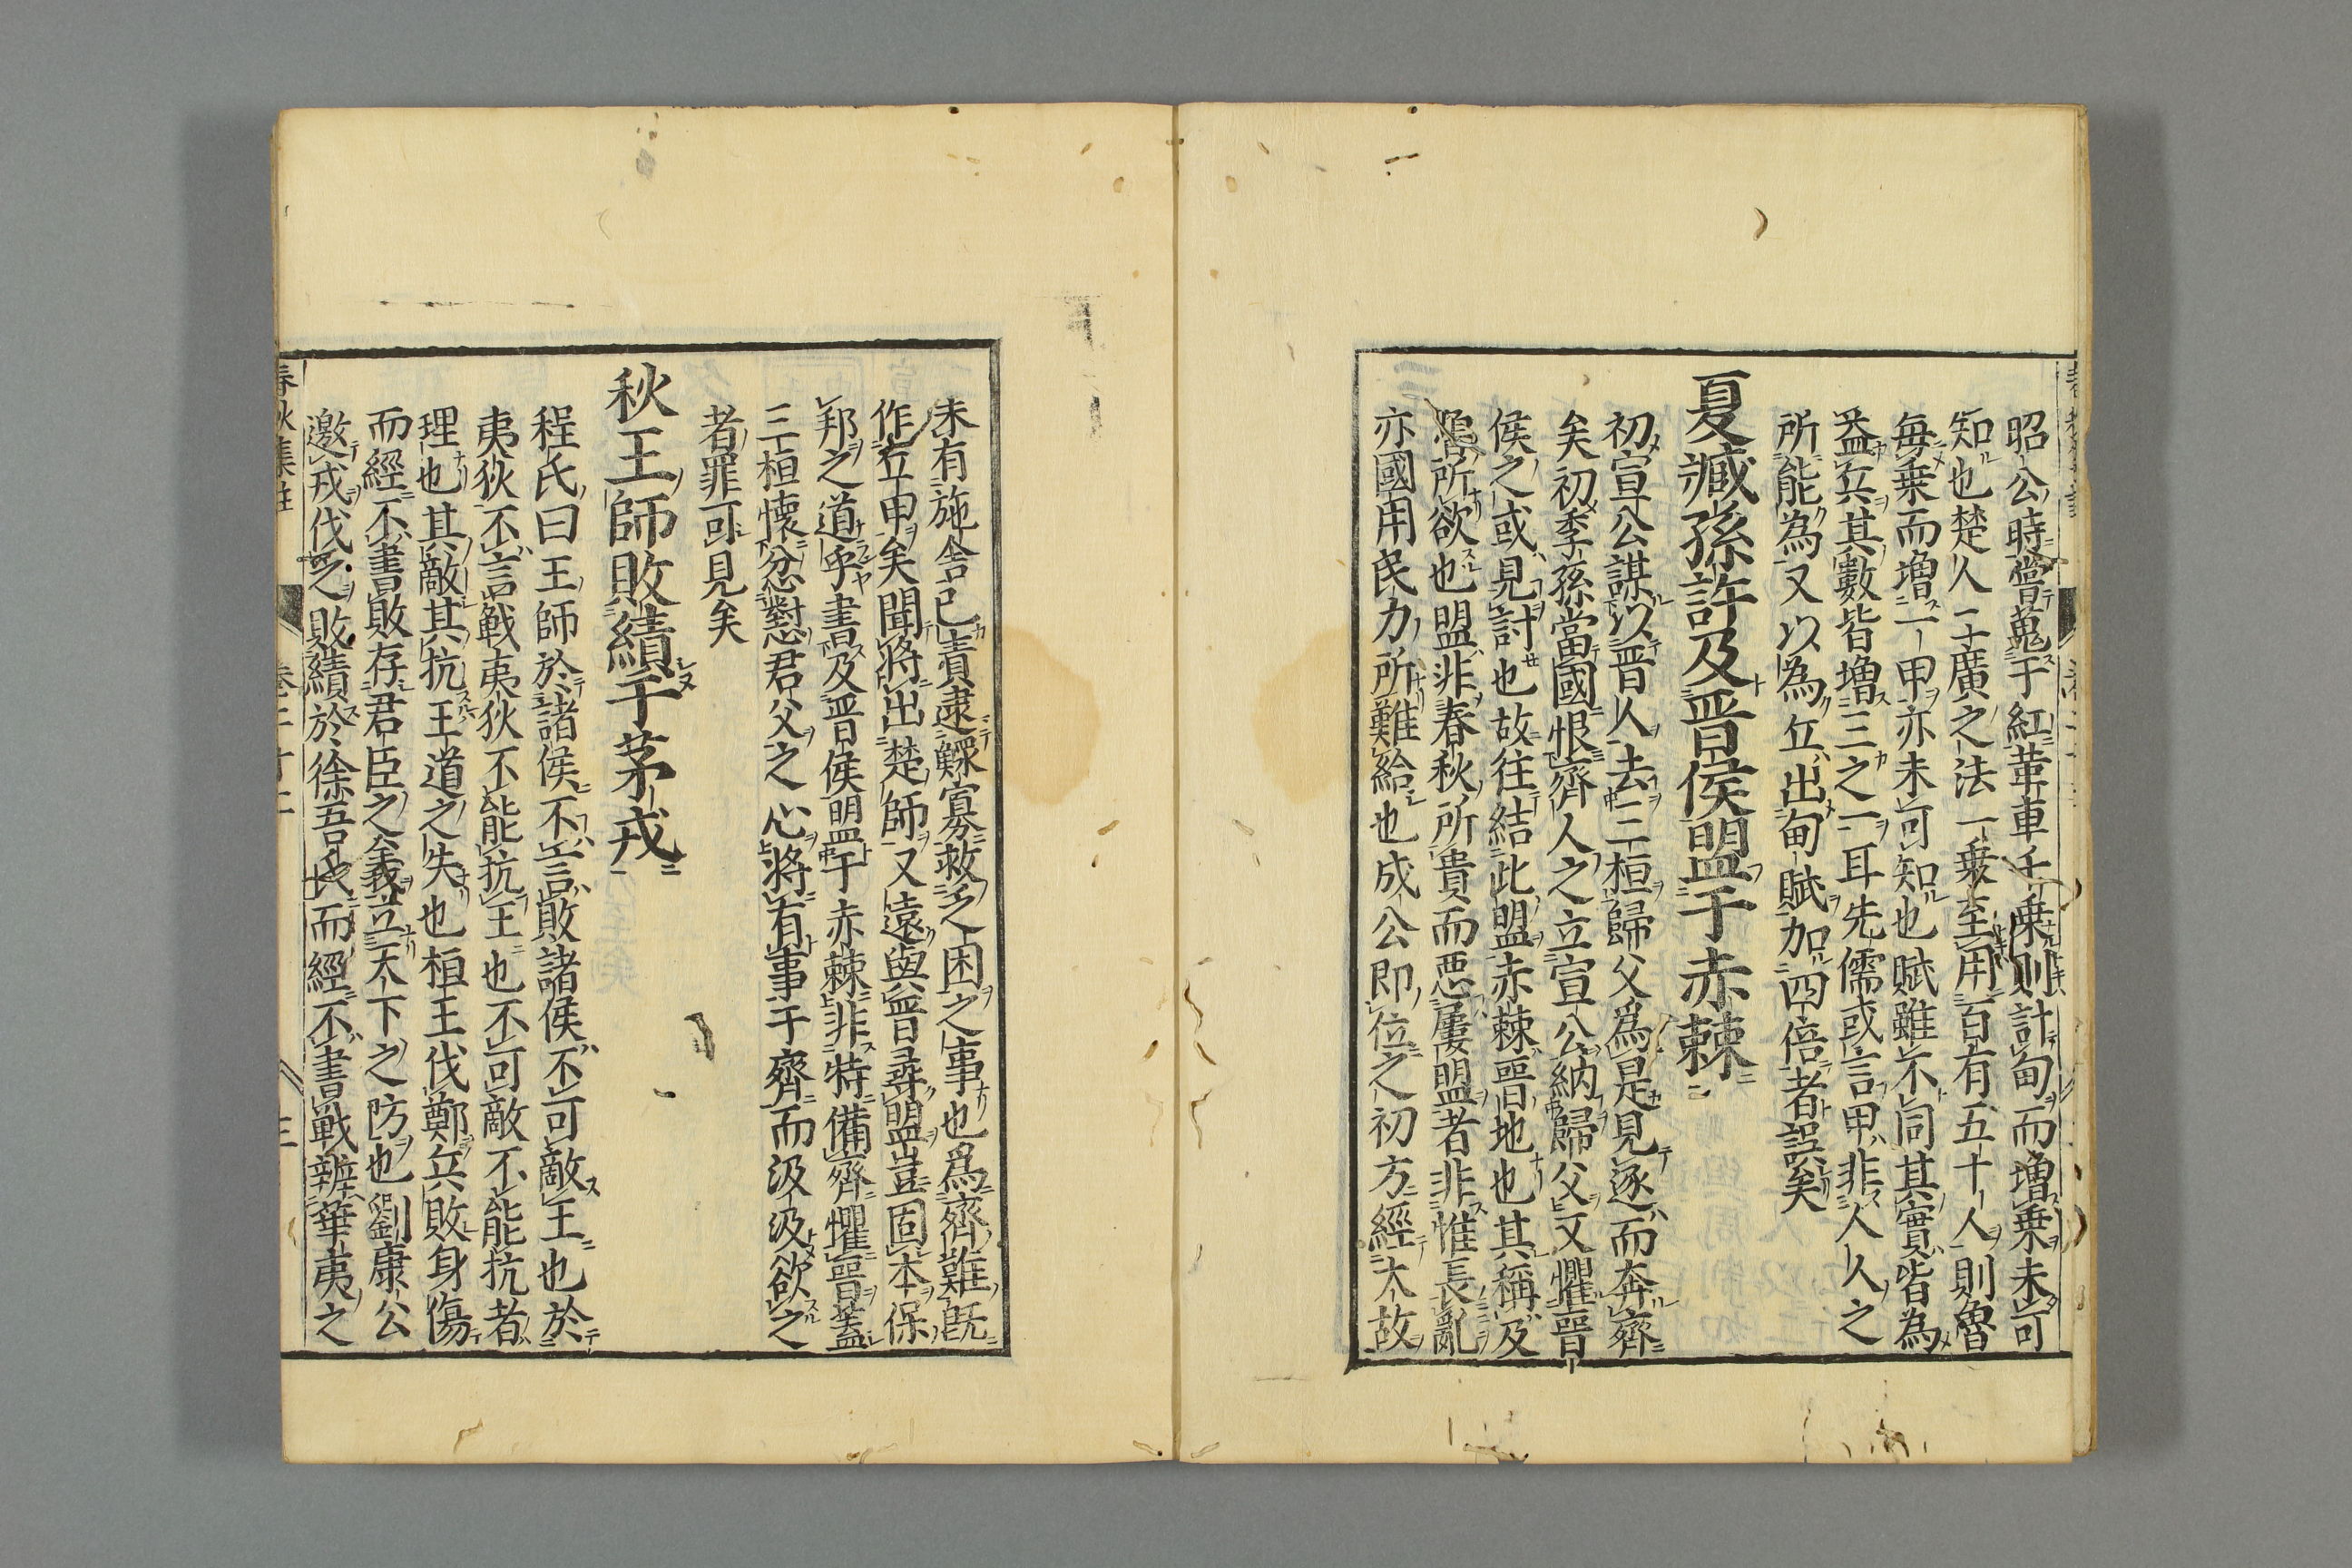 昭公時嘗蒐于紅革車千乗則計甸而増乗未可
知也楚人二廣之法一乗至用百有五十人則魯
毎乗而増一甲亦未可知也賦雖不同其實皆為
益兵其數皆増三之一耳先儒或言甲非人人之
所能為又以為丘出甸賦加四倍者誤矣
夏臧孫許及晉侯盟于赤棘
初宣公謀以晉人去三桓歸父爲是見逐而奔齊
矣初季孫當國恨齊人之立宣公納歸父又懼晉
侯之或見討也故往結此盟赤棘晉地也其稱及
魯所欲也盟非春秋所貴而惡屢盟者非惟長亂
亦國用民力所難給也成公即位之初方經大故
未有施舍已責逮鰥寡救乏困之事也爲齊難既
作丘甲矣聞將出楚師又遠與晉尋盟豈固本保
邦之道乎書及晉侯盟于赤棘非特備齊懼晉蓋
三桓懷忿懟君父之心將有事于齊而汲汲欲之
者罪可見矣
秋王師敗績于茅戎
程氏曰王師於諸侯不言敗諸侯不可敵王也於
夷狄不言戰夷狄不能抗王也不可敵不能抗者
理也其敵其抗王道之失也桓王伐鄭兵敗身傷
而經不書敗存君臣之義立天下之防也劉康公
邀戎伐之敗績於徐吾氏而經不書戰辨華夷之
春秋集註 卷二十二 三